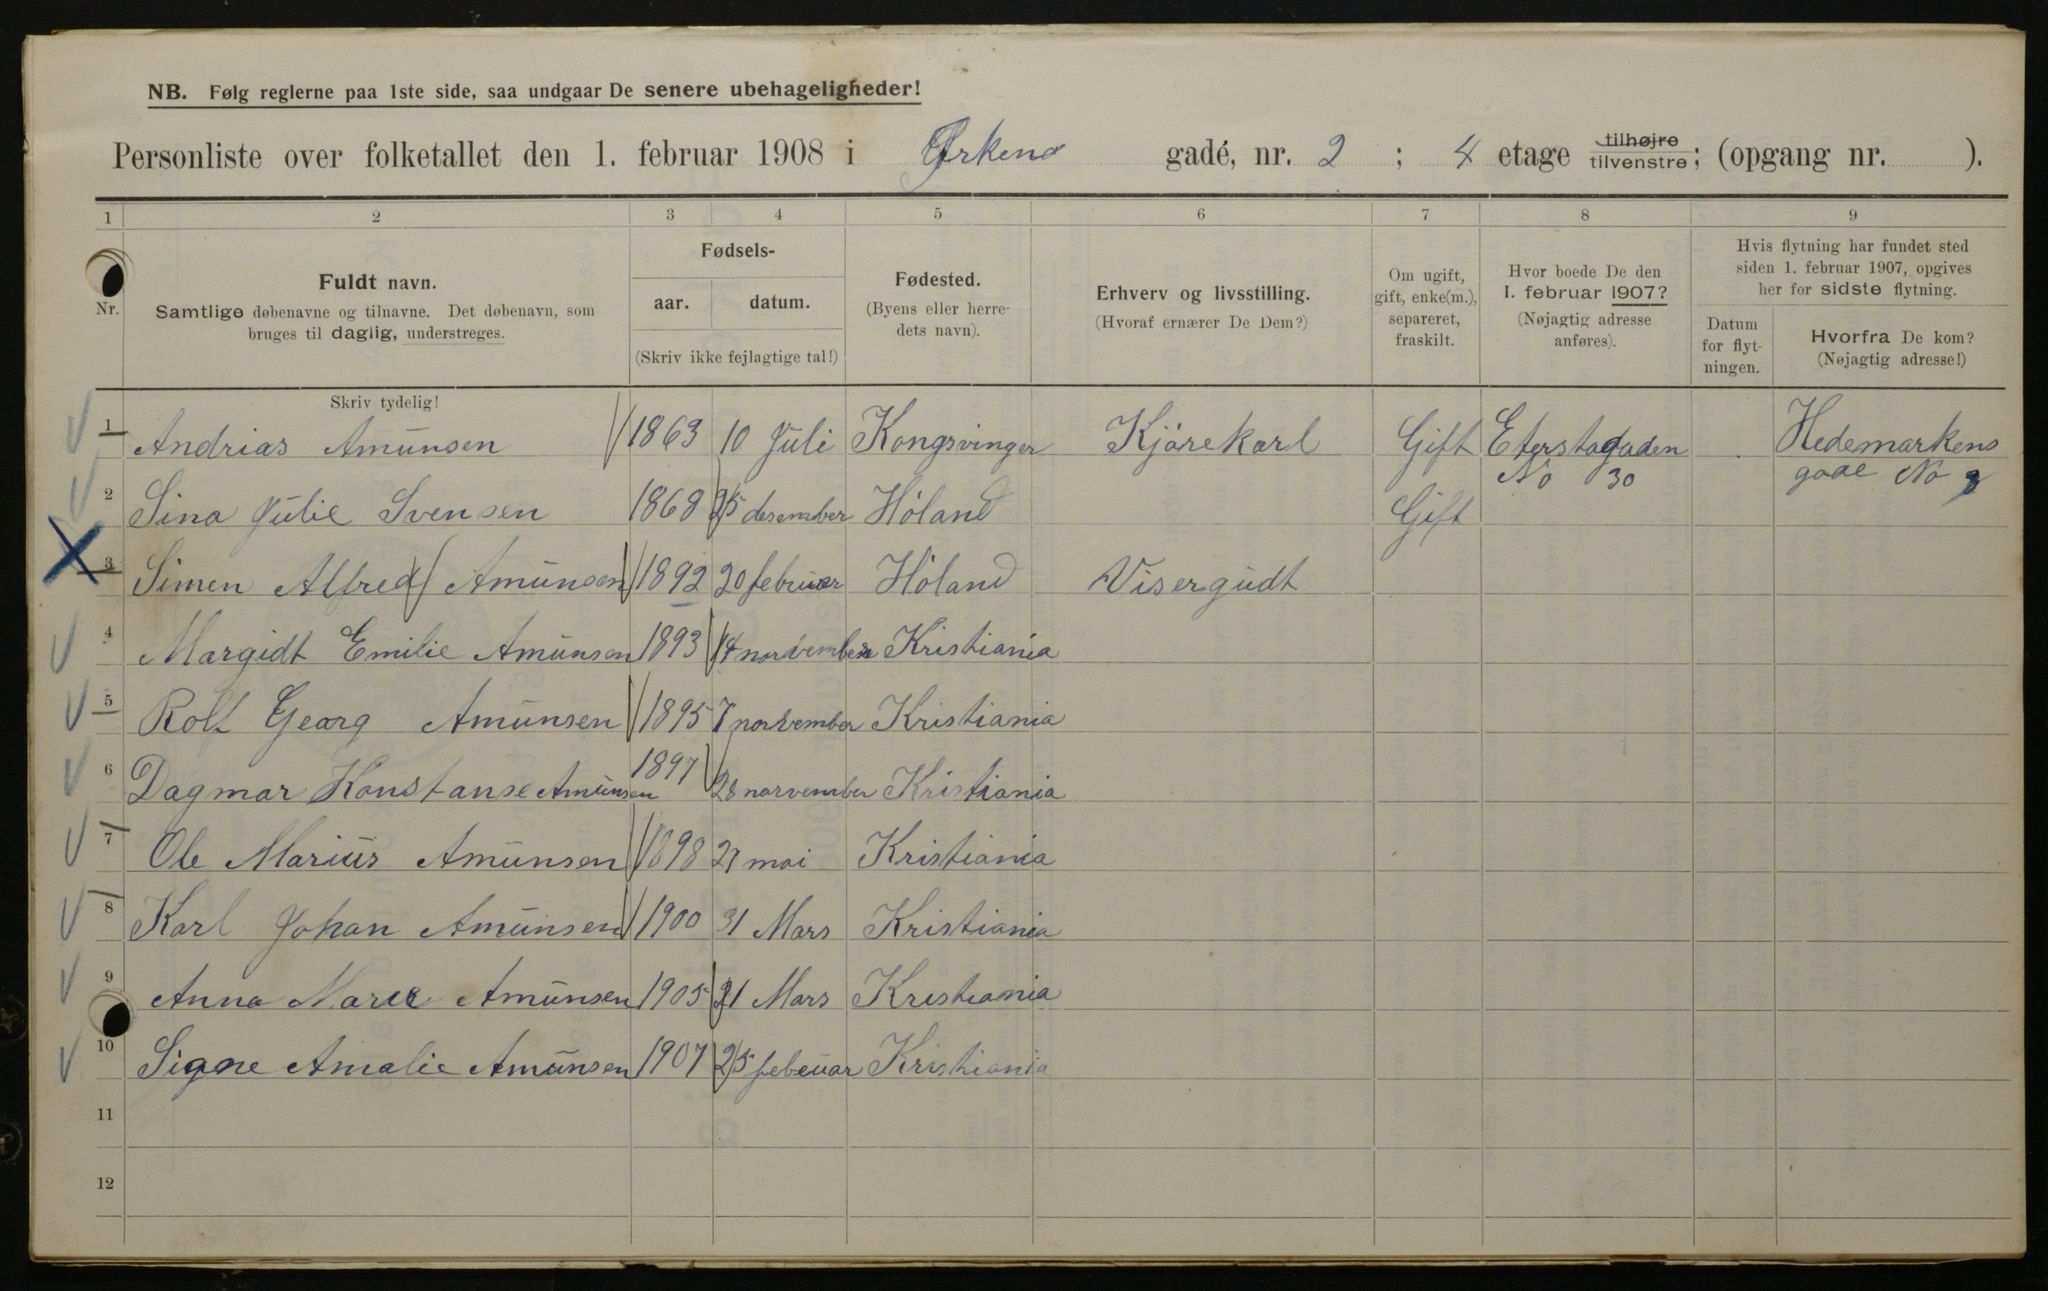 NB. Følg reglerne paa 1ste side, saa undgaar De senere ubehageligheder!
Personliste over folketallet den 1. februar 1908 i Ørkens gade, nr. 2 ; 4 etage tilhøjre tilvenstre; (opgang nr. ).
1 2 3 4 5 6 7 8 9
Nr.
Fuldt navn.
Samtlige døbenavne og tilnavne. Det døbenavn, som
bruges til daglig, understreges.
Fødsels-
aar. datum.
(Skriv ikke fejlagtige tal!)
Fødested.
(Byens eller herre-
dets navn).
Erhverv og livsstilling.
(Hvoraf ernærer De Dem?)
Om ugift,
gift, enke(m.),
separeret,
fraskilt.
Hvor boede De den
1. februar 1907?
(Nøjagtig adresse
anføres).
Hvis flytning har fundet sted
siden 1. februar 1907, opgives
her for sidste flytning.
Datum
for flyt-
ningen.
Hvorfra De kom?
(Nøjagtig adresse!)
Skriv tydelig!
1 Andrias Amunsen 1863 10 Juli Kongsvinger Kjørekarl Gift Eterstagaden No 30 Hedemarkens gade No
2 Sina Julie Svensen 1868 25 desember Høland Gift
3 Simen Alfred Amunsen 1892 20 februar Høland Visergudt
4 Margidt Emilie Amunsen 1893 14 november Kristiania
5 Rolf Georg Amunsen 1895 7 november Kristiania
6 Dagmar Konstanse Amunsen 1897 28 norvember Kristiania
7 Ole Marius Amunsen 1898 27 mai Kristiania
8 Karl Johan Amunsen 1900 31 Mars Kristiania
9 Anna Marie Amunsen 1905 21 Mars Kristiania
10 Signe Amalie Amunsen 1907 25 febuar Kristiania
11
12